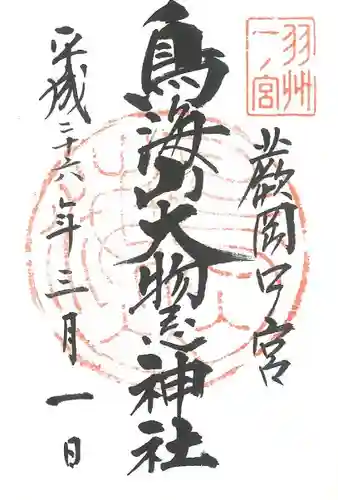 羽州
一ノ宮
蕨岡口宮
鳥海山大物忌神社
平成二十六年三月一日